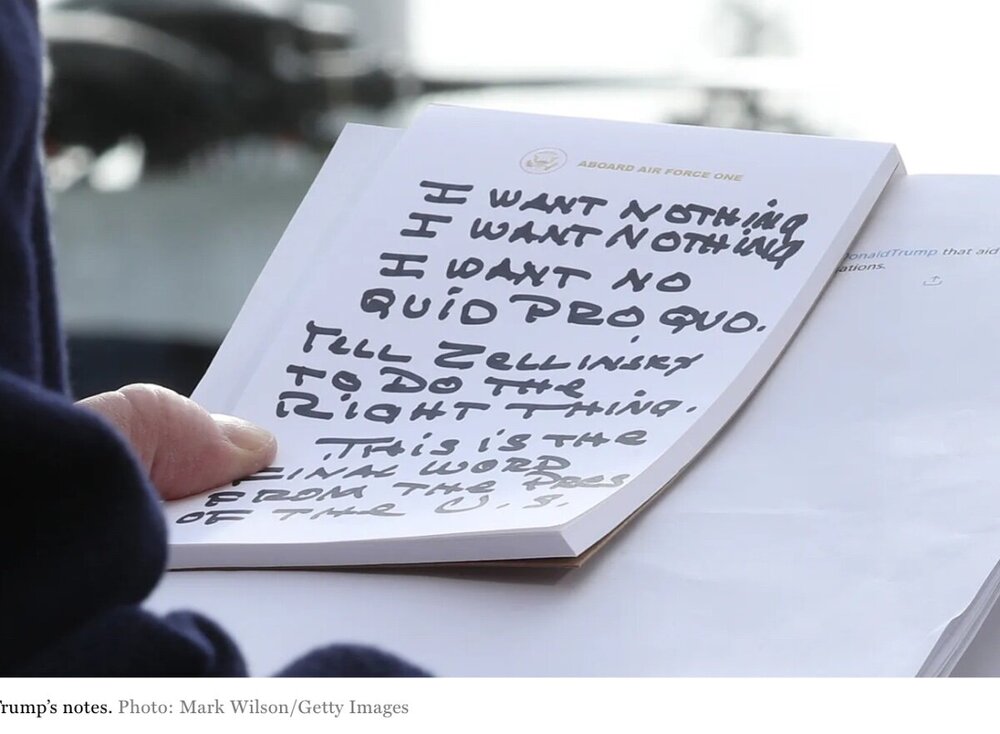 ABOARD AIR FORCE ONE
I WANT NOTHING
I WANT NOTHING
I WANT NO
QUID PRO QUO.
TELL ZELLINSKY
TO DO THE
RIGHT THING.
THIS IS THE
FINAL WORD
FROM THE PRES
OF THE U.S.
DonaldTrump that aid
ations.
Trump’s notes. Photo: Mark Wilson/Getty Images